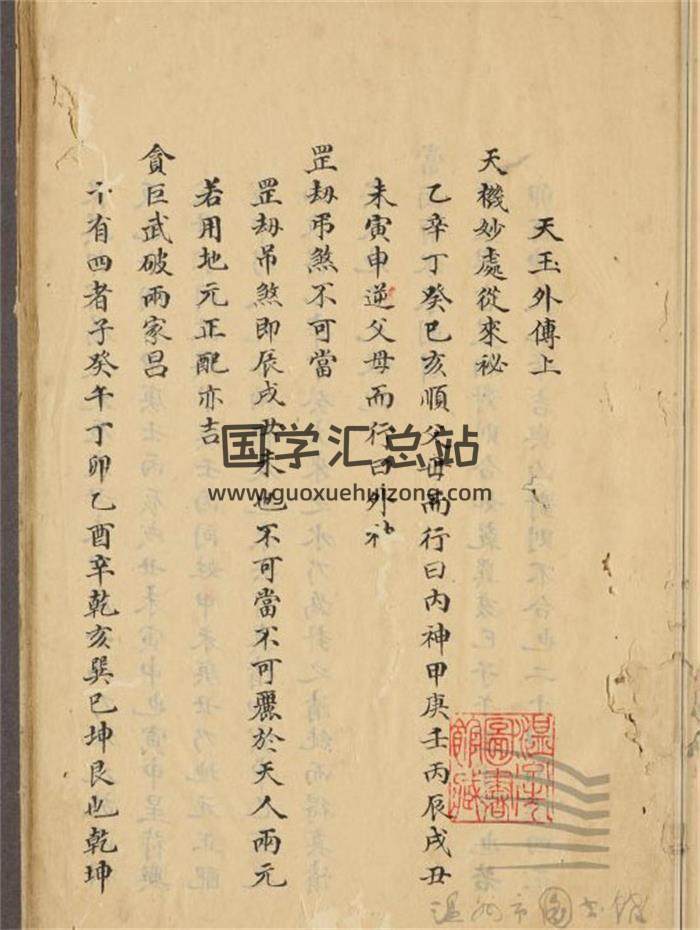 天玉外傳上
天機妙處從來祕
乙辛丁癸巳亥順父母而行曰內神甲庚壬丙辰戌丑
未寅申逆父母而行曰外神
罡劫弔煞不可當
罡劫吊煞即辰戌丑未也不可當不可雜於天人兩元
若用地元正配亦吉
貪巨武破兩家呂
十有四者子癸午丁卯乙酉辛乾亥巽巳坤艮也乾坤
国学汇总站
www.guoxuehuizong.com
溫州市圖書館藏
温州市图书馆